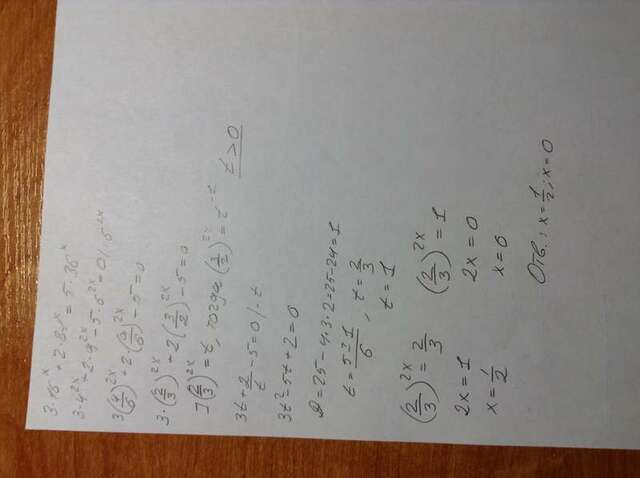 3·16^x + 2·81^x = 5·36^x
3·4^2x + 2·9^2x - 5·6^2x = 0 /: 6^2x
3(4/6)^2x + 2·(9/6)^2x - 5 = 0
3·(2/3)^2x + 2(3/2)^2x - 5 = 0
](2/3)^2x = t, тогда (3/2)^2x = t^-1 t > 0
3t + 2/t - 5 = 0 /·t
3t² - 5t + 2 = 0
D = 25 - 4·3·2 = 25 - 24 = 1
t = (5 ± 1)/6, t = 2/3
t = 1
(2/3)^2x = 2/3 (2/3)^2x = 1
2x = 1 2x = 0
x = 1/2 x = 0
Отв.: x = 1/2; x = 0